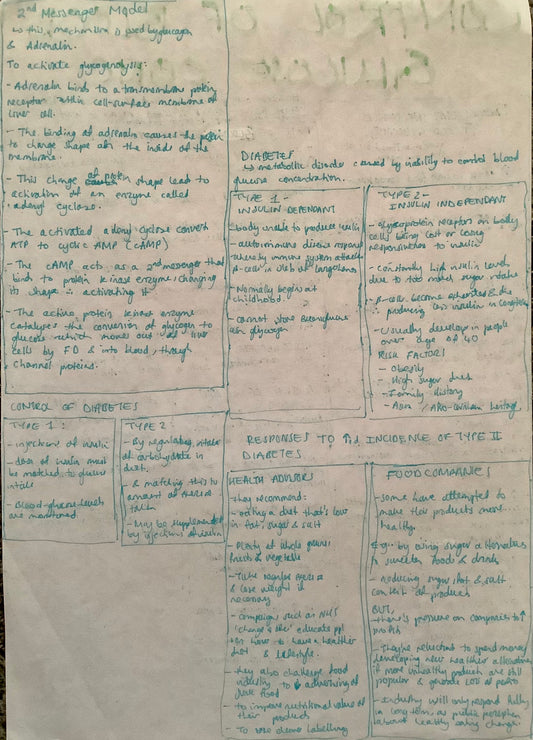 2nd Messenger Model
↳ this mechanism is used by glucagon
& Adrenalin.
To activate glycogenolysis:
- Adrenalin binds to a transmembrane protein
receptor within cell-surface membrane of
liver cell.
- The binding of adrenalin causes the protein
to change shape on the inside of the
membrane.
- This change of protein shape lead to
activation of an enzyme called
adenyl cyclase.
- The activated adenyl cyclase convert
ATP to cyclic AMP (cAMP)
- The cAMP acts as a 2nd messenger that
binds to protein kinase enzyme, changing
its shape ∴ activating it
- The active protein kinase enzyme
catalyses the conversion of glycogen to
glucose which moves out of liver
cells by FD & into blood, through
channel proteins.
DIABETES
↳ metabolic disorder caused by inability to control blood
glucose concentration.
TYPE 1 -
INSULIN DEPENDANT
- body unable to produce insulin
- autoimmune disease response
whereby immune system attacks
β-cells in islets of langerhans
- Normally begins at
childhood
- Cannot store glucose
as glycogen
TYPE 2 -
INSULIN INDEPENDANT
- Glycoprotein receptor on body
cells being lost or losing
responsiveness to insulin
- Constantly high insulin levels
due to too much sugar intake
- β-cells become
∴ producing insulin
- Usually develop in people
over age of 40
RISK FACTORS
- Obesity
- High sugar diet
- Family history
- Asian / Afro-Caribbean heritage
CONTROL OF DIABETES
TYPE 1:
- injections of insulin
- dose of insulin must
be matched to glucose
intake
- Blood-glucose levels
are monitored.
TYPE 2
- By regulating intake
of carbohydrate in
diet.
- & matching this to
amount of exercise
taken
- May be supplemented
by injections of insulin
RESPONSES TO ↑ INCIDENCE OF TYPE II
DIABETES
HEALTH ADVISORS
- they recommend:
- eating a diet that's low
in fat, sugar & salt
- Plenty of whole grains,
fruits & vegetables
- Take regular exercise
& lose weight if
necessary
- campaigns such as NHS
'change 4 life' educate ppl
on how to have a healthier
diet & lifestyle.
- they also challenge food
industry to ↓ advertising of
junk food
- to improve nutritional value of
their products
- To use clearer labelling
FOOD COMPANIES
- some have attempted to
make their products more
healthy.
E.g. by using sugar alternatives
to sweeten foods & drinks
- reducing sugar, fat & salt
content of products
BUT,
- there's pressure on companies to ↑
profits
- They're reluctant to spend money
developing new healthier alternatives
if more unhealthy products are still
popular & generate lots of profit
- Industry will only respond fully
in long term, as public perception
about healthy eating change.